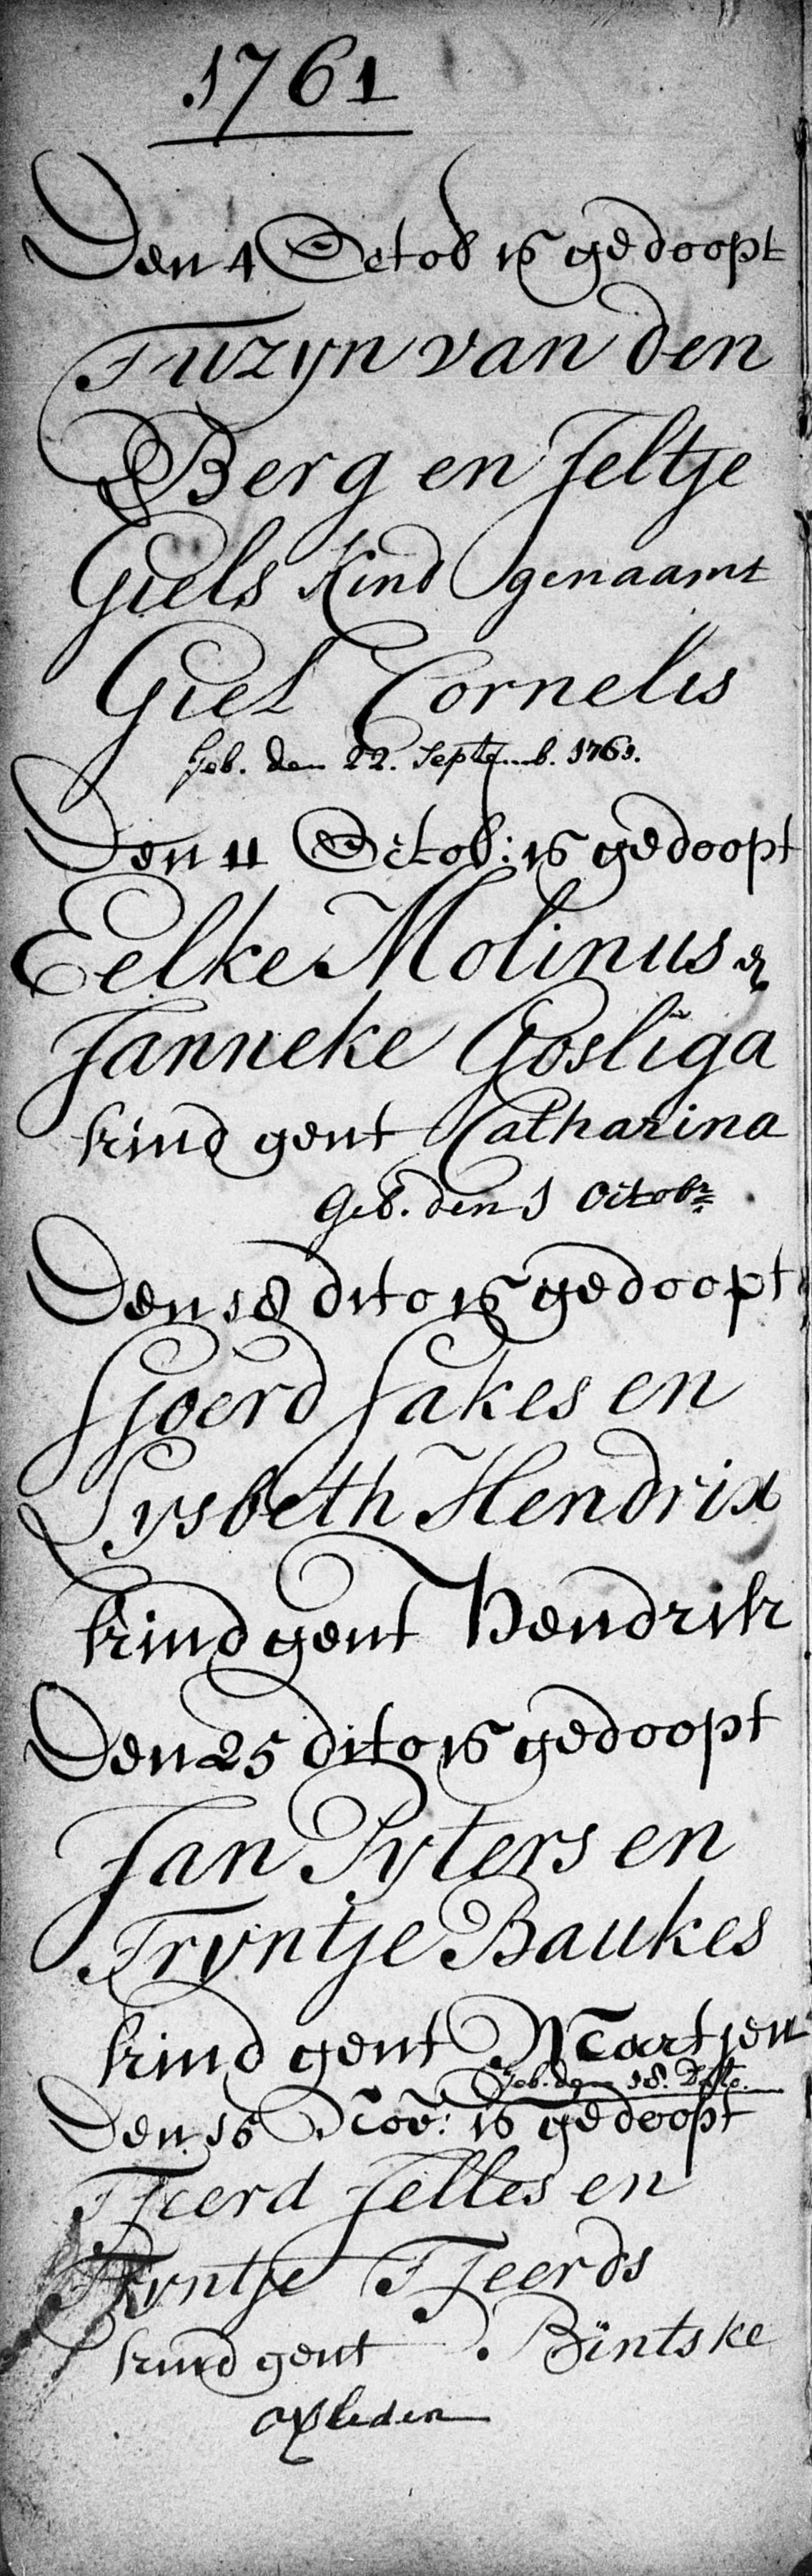 1761
Den 4 Octob is gedoopt
Tuzyn van den
Berg en Jeltje
Giels Kind genaamt
Giel Cornelis
Geb. den 22. Septemb. 1761.
Den 11 Octob: is gedoopt
Eelke Molinus &
Janneke Gosliga
kind gent Catharina
Geb. den 1 Octobr.
Den 18 dito is gedoopt
Sjoerd Sakes en
Lysbeth Hendrix
kind gent Hendrik
Den 25 dito is gedoopt
Jan Pyters en
Tryntje Baukes
kind gent Martjen
Geb. den 18. Dito.
Den 15 Nov: is gedoopt
Tjeerd Jelles en
Tryntje Tjeerds
kind gent Bintske
overleden